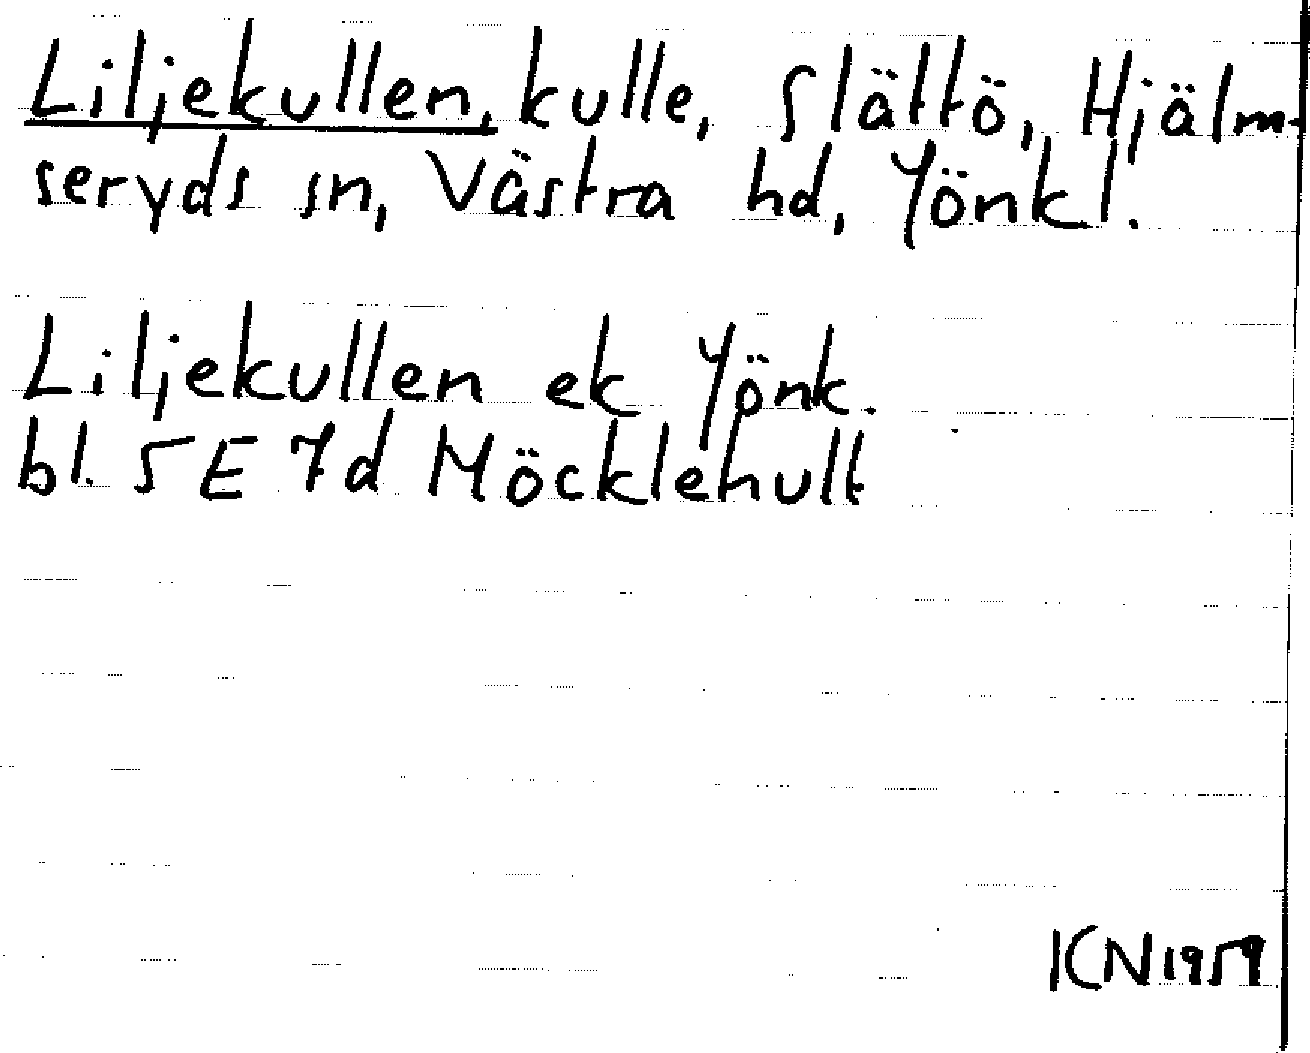 Liljekullen, kulle, Slättö, Hjälm-
seryds sn, Västra hd, Jönkl.
Liljekullen ek Jönk.
bl. 5E 7d Möcklehult
KN 1959